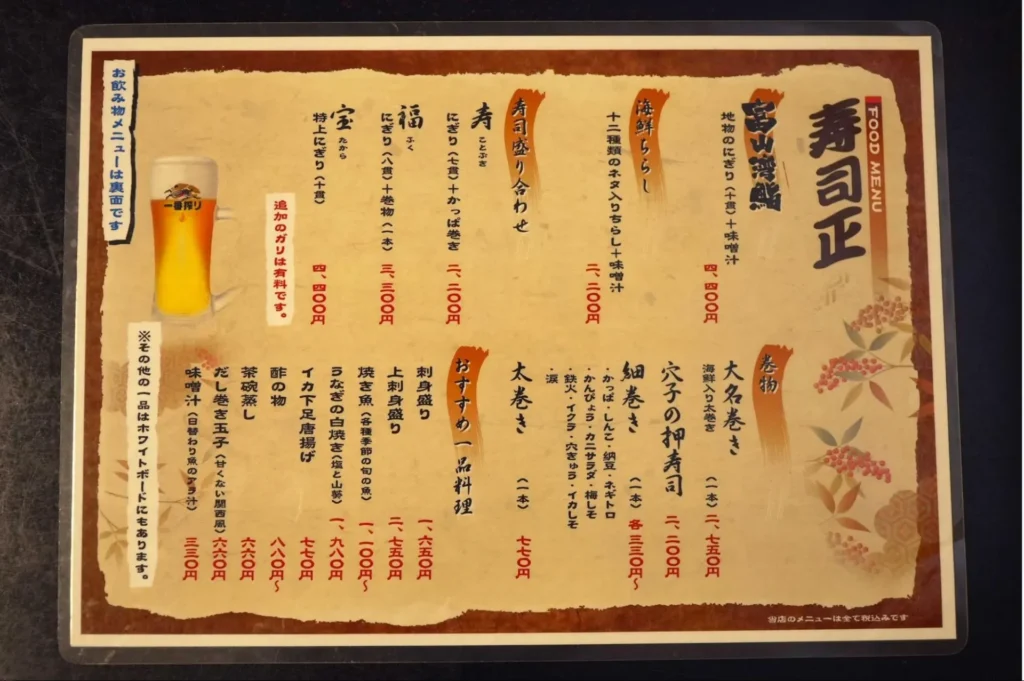 FOOD MENU
寿司正
富山湾鮨
地物のにぎり（十貫）+味噌汁
四、四〇〇円
海鮮ちらし
十二種類のネタ入りちらし+味噌汁
二、二〇〇円
寿司盛り合わせ
寿
ことぶき
にぎり（七貫）+かっぱ巻き
二、二〇〇円
福
ふく
にぎり（八貫）+巻物（一本）
三、三〇〇円
宝
たから
特上にぎり（十貫）
四、四〇〇円
追加のガリは有料です。
一番搾り
お飲み物メニューは裏面です
巻物
大名巻き
海鮮入り太巻き
（一本）二、七五〇円
穴子の押寿司
二、二〇〇円
細巻き
（一本）各三三〇円〜
・かっぱ・しんこ・納豆・ネギトロ
・かんぴょう・カニサラダ・梅しそ
・鉄火・イクラ・穴きゅう・イカしそ
・涙
太巻き
（一本）
七七〇円
おすすめ一品料理
刺身盛り
一、六五〇円
上刺身盛り
二、七五〇円
焼き魚（各種季節の旬の魚）
一、一〇〇円〜
うなぎの白焼き（塩と山葵）
一、九八〇円
イカ下足唐揚げ
七七〇円
酢の物
八八〇円〜
茶碗蒸し
六六〇円
だし巻き玉子（甘くない関西風）
六六〇円
味噌汁（日替わり魚のアラ汁）
三三〇円
※その他の一品はホワイトボードにもあります。
当店のメニューは全て税込みです